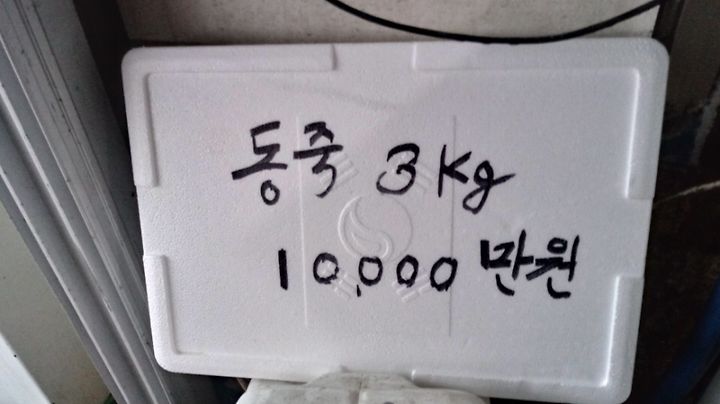 동죽 3Kg
10,000만원